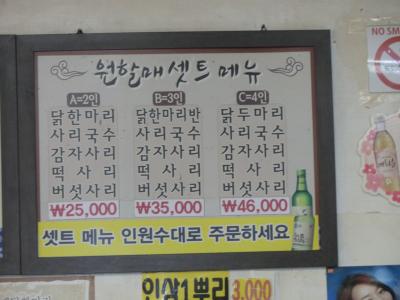 원할매 셋트 메뉴
A=2인 B=3인 C=4인
닭한마리 닭한마리반 닭두마리
사리국수 사리국수 사리국수
감자사리 감자사리 감자사리
떡사리 떡사리 떡사리
버섯사리 버섯사리 버섯사리
₩25,000 ₩35,000 ₩46,000
셋트 메뉴 인원수대로 주문하세요
인삼1뿌리 3,000
NO SM